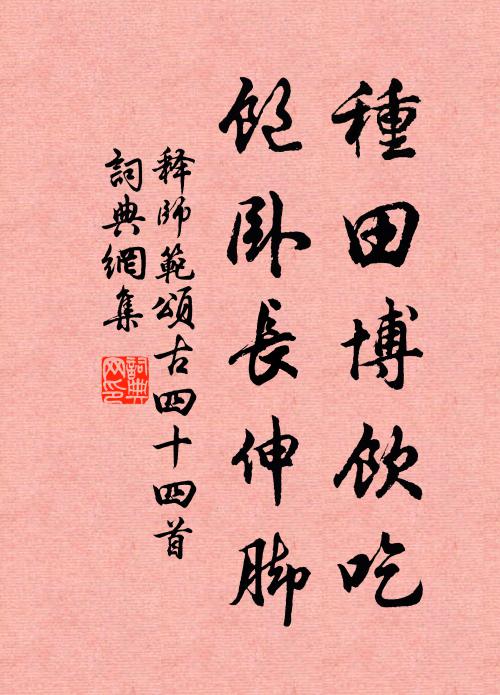 種田博飲吃
飽卧長伸脚
释師範頌古四十四首
詞典網集
詞典網印